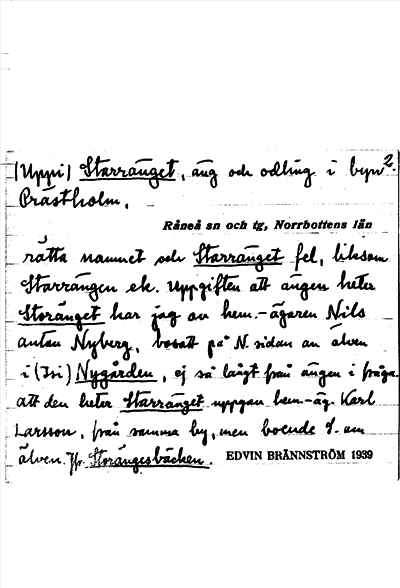 2.
(Uppi) Starränget, äng och odling i byn
Prästholm.
Råneå sn och tg, Norrbottens län
rätta namnet och Starränget fel, liksom
Starrängen ek. Uppgiften att ängen heter
Storänget har jag av hem.-ägaren Nils
Anton Nyberg, bosatt på N. sidan av älven
i (Isi) Nygården, ej så långt från ängen i fråga.
att den heter Starränget uppgav hem-äg. Karl
Larsson, från samma by, men boende S. om
älven. Jfr. Storängesbäcken.
EDVIN BRÄNNSTRÖM 1939